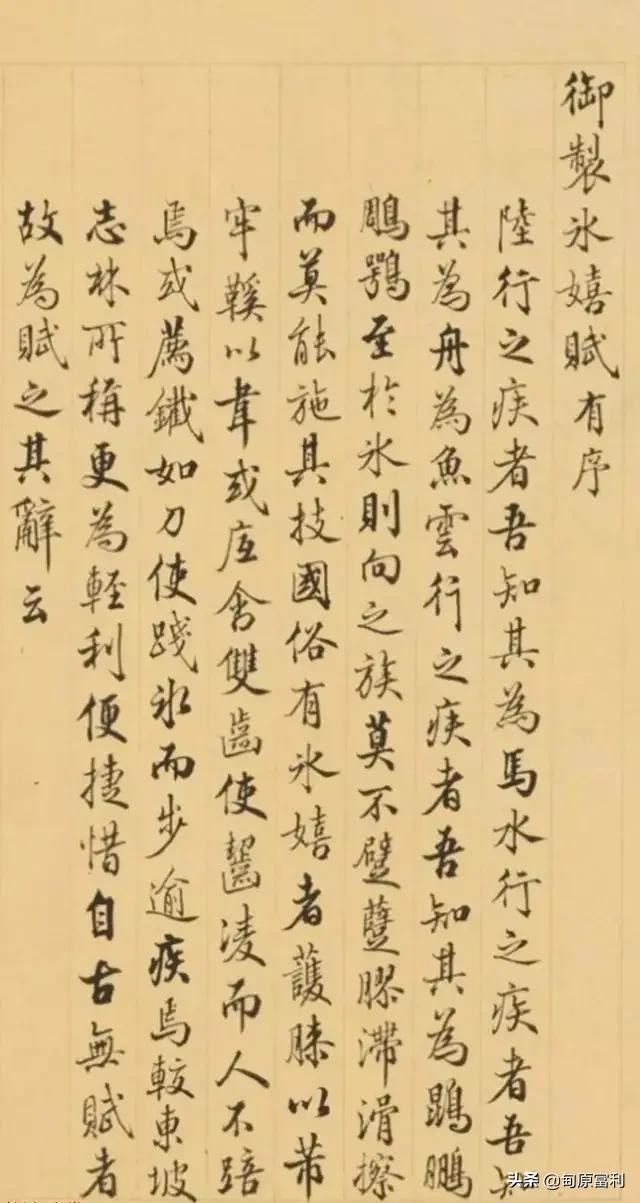 御製冰嬉賦有序
陸行之疾者吾知其為馬水行之疾者吾知
其為舟為魚雲行之疾者吾知其為鵾鵬
鵰鶚至於冰則向之族莫不躄躠膠滯滑擦
而莫能施其技國俗有冰嬉者護膝以芾
牢鞵以韋或底含雙齒使齧凌而人不踣
焉或薦鐵如刀使踐冰而步逾疾焉較東坡
志林所稱更為輕利便捷惜自古無賦者
故為賦之其辭云
头条 @甸原富利